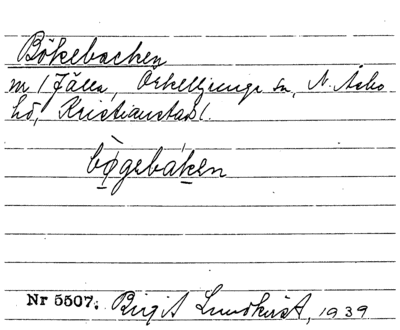 Bökebacken
nr 1 Fälla, Örkelljunga sn, N. Åsbo
hd, Kristianstads l.
bø̀gebáken
Nr 5507. Birgit Lundkvist, 1939